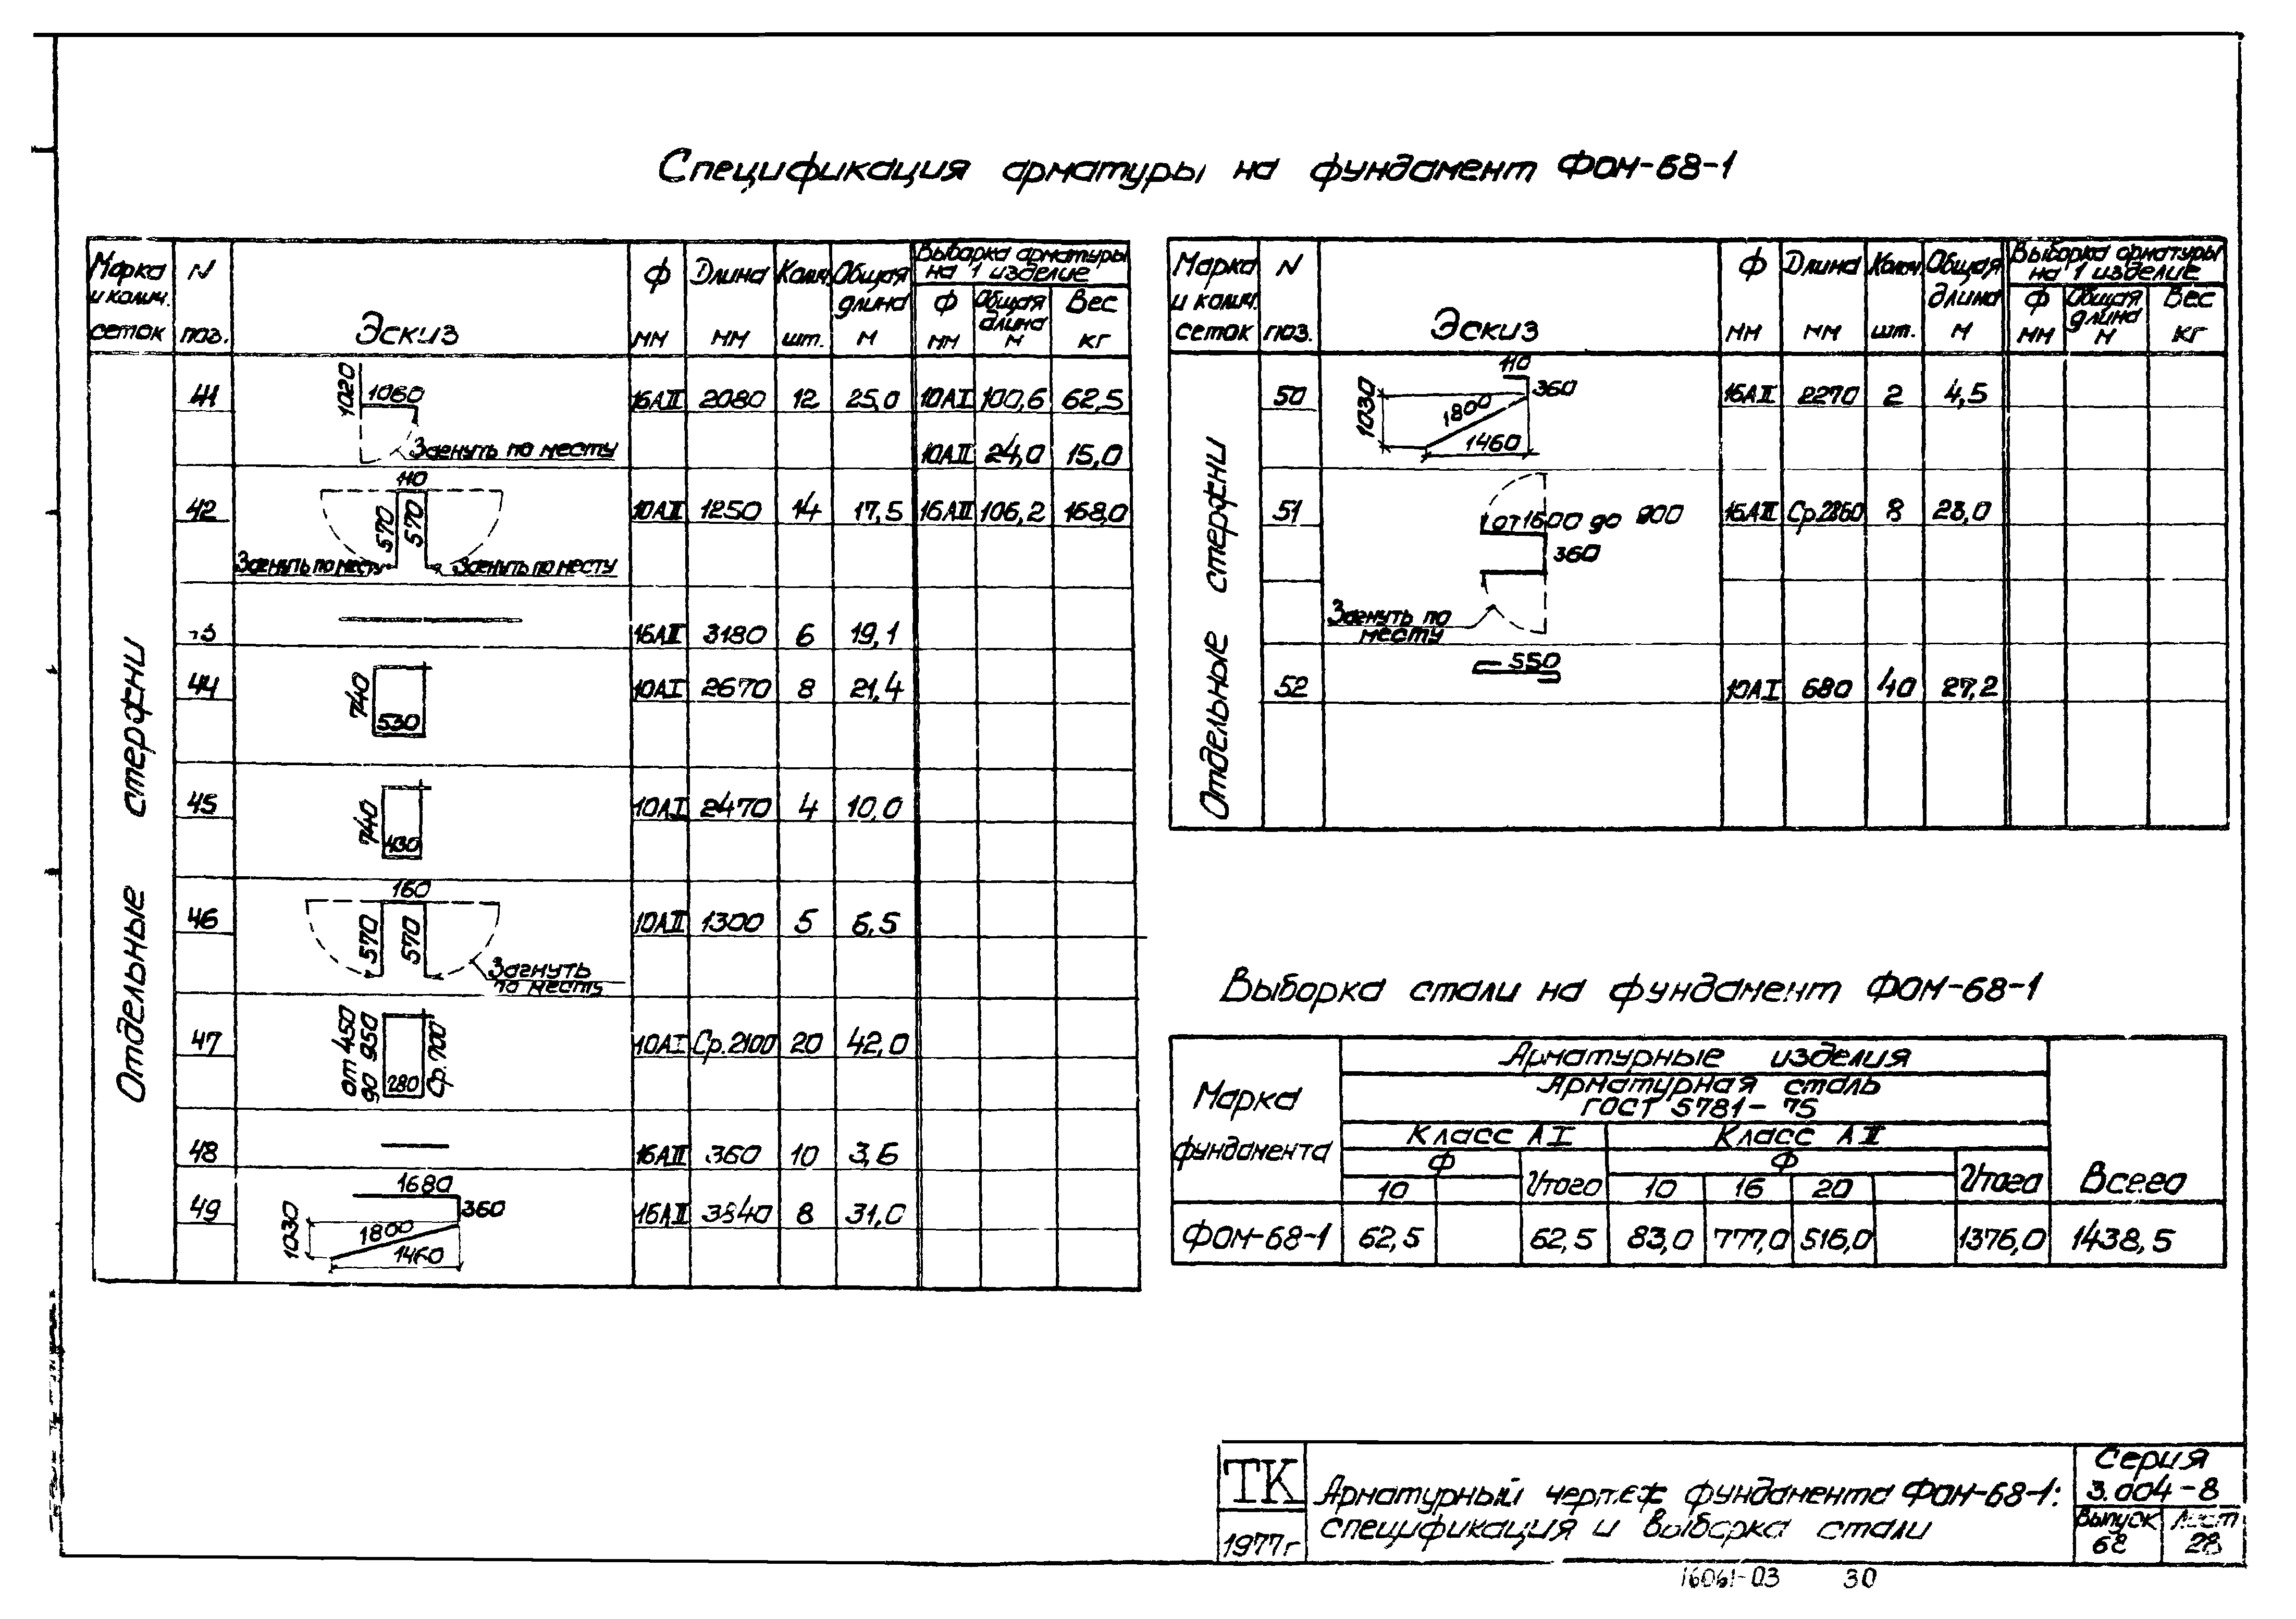 Спецификация арматуры на фундамент ФОМ-68-1
Марка и колич. сеток N поз. Эскиз Ф мм Длина мм Колич. шт. Общая длина м Выборка арматуры на 1 изделие Ф мм Общая длина м Вес кг
Отдельные стержни
41 1020 1060 Загнуть по месту 16АII 2080 12 25,0 10АI 100,6 62,5
10АII 24,0 15,0
42 110 570 570 Загнуть по месту Загнуть по месту 10АII 1250 14 17,5 16АII 106,2 168,0
16АII 3180 6 19,1
44 740 530 10АI 2670 8 21,4
45 740 430 10АI 2470 4 10,0
46 160 570 570 Загнуть по месту 10АII 1300 5 6,5
47 от 450 до 950 280 Ср. 700 10АI Ср.2100 20 42,0
48 16АII 360 10 3,6
49 1680 360 1030 1800 1460 16АII 3840 8 31,0
Марка и колич. сеток N поз. Эскиз Ф мм Длина мм Колич. шт. Общая длина м Выборка арматуры на 1 изделие Ф мм Общая длина м Вес кг
Отдельные стержни
50 110 360 1030 1800 1460 16АII 2270 2 4,5
51 от 1600 до 900 360 Загнуть по месту 16АII Ср.2860 8 23,0
52 550 10АI 680 40 27,2
Выборка стали на фундамент ФОМ-68-1
Марка фундамента
Арматурные изделия
Арматурная сталь
ГОСТ 5781-75
Класс АI Класс АII
Ф Итого Ф Итого Всего
10 10 16 20
ФОМ-68-1 62,5 62,5 83,0 777,0 516,0 1376,0 1438,5
ТК
1977г
Арматурный чертеж фундамента ФОМ-68-1:
спецификация и выборка стали
Серия
3.004-8
Выпуск Лист
68 28
16061-03 30